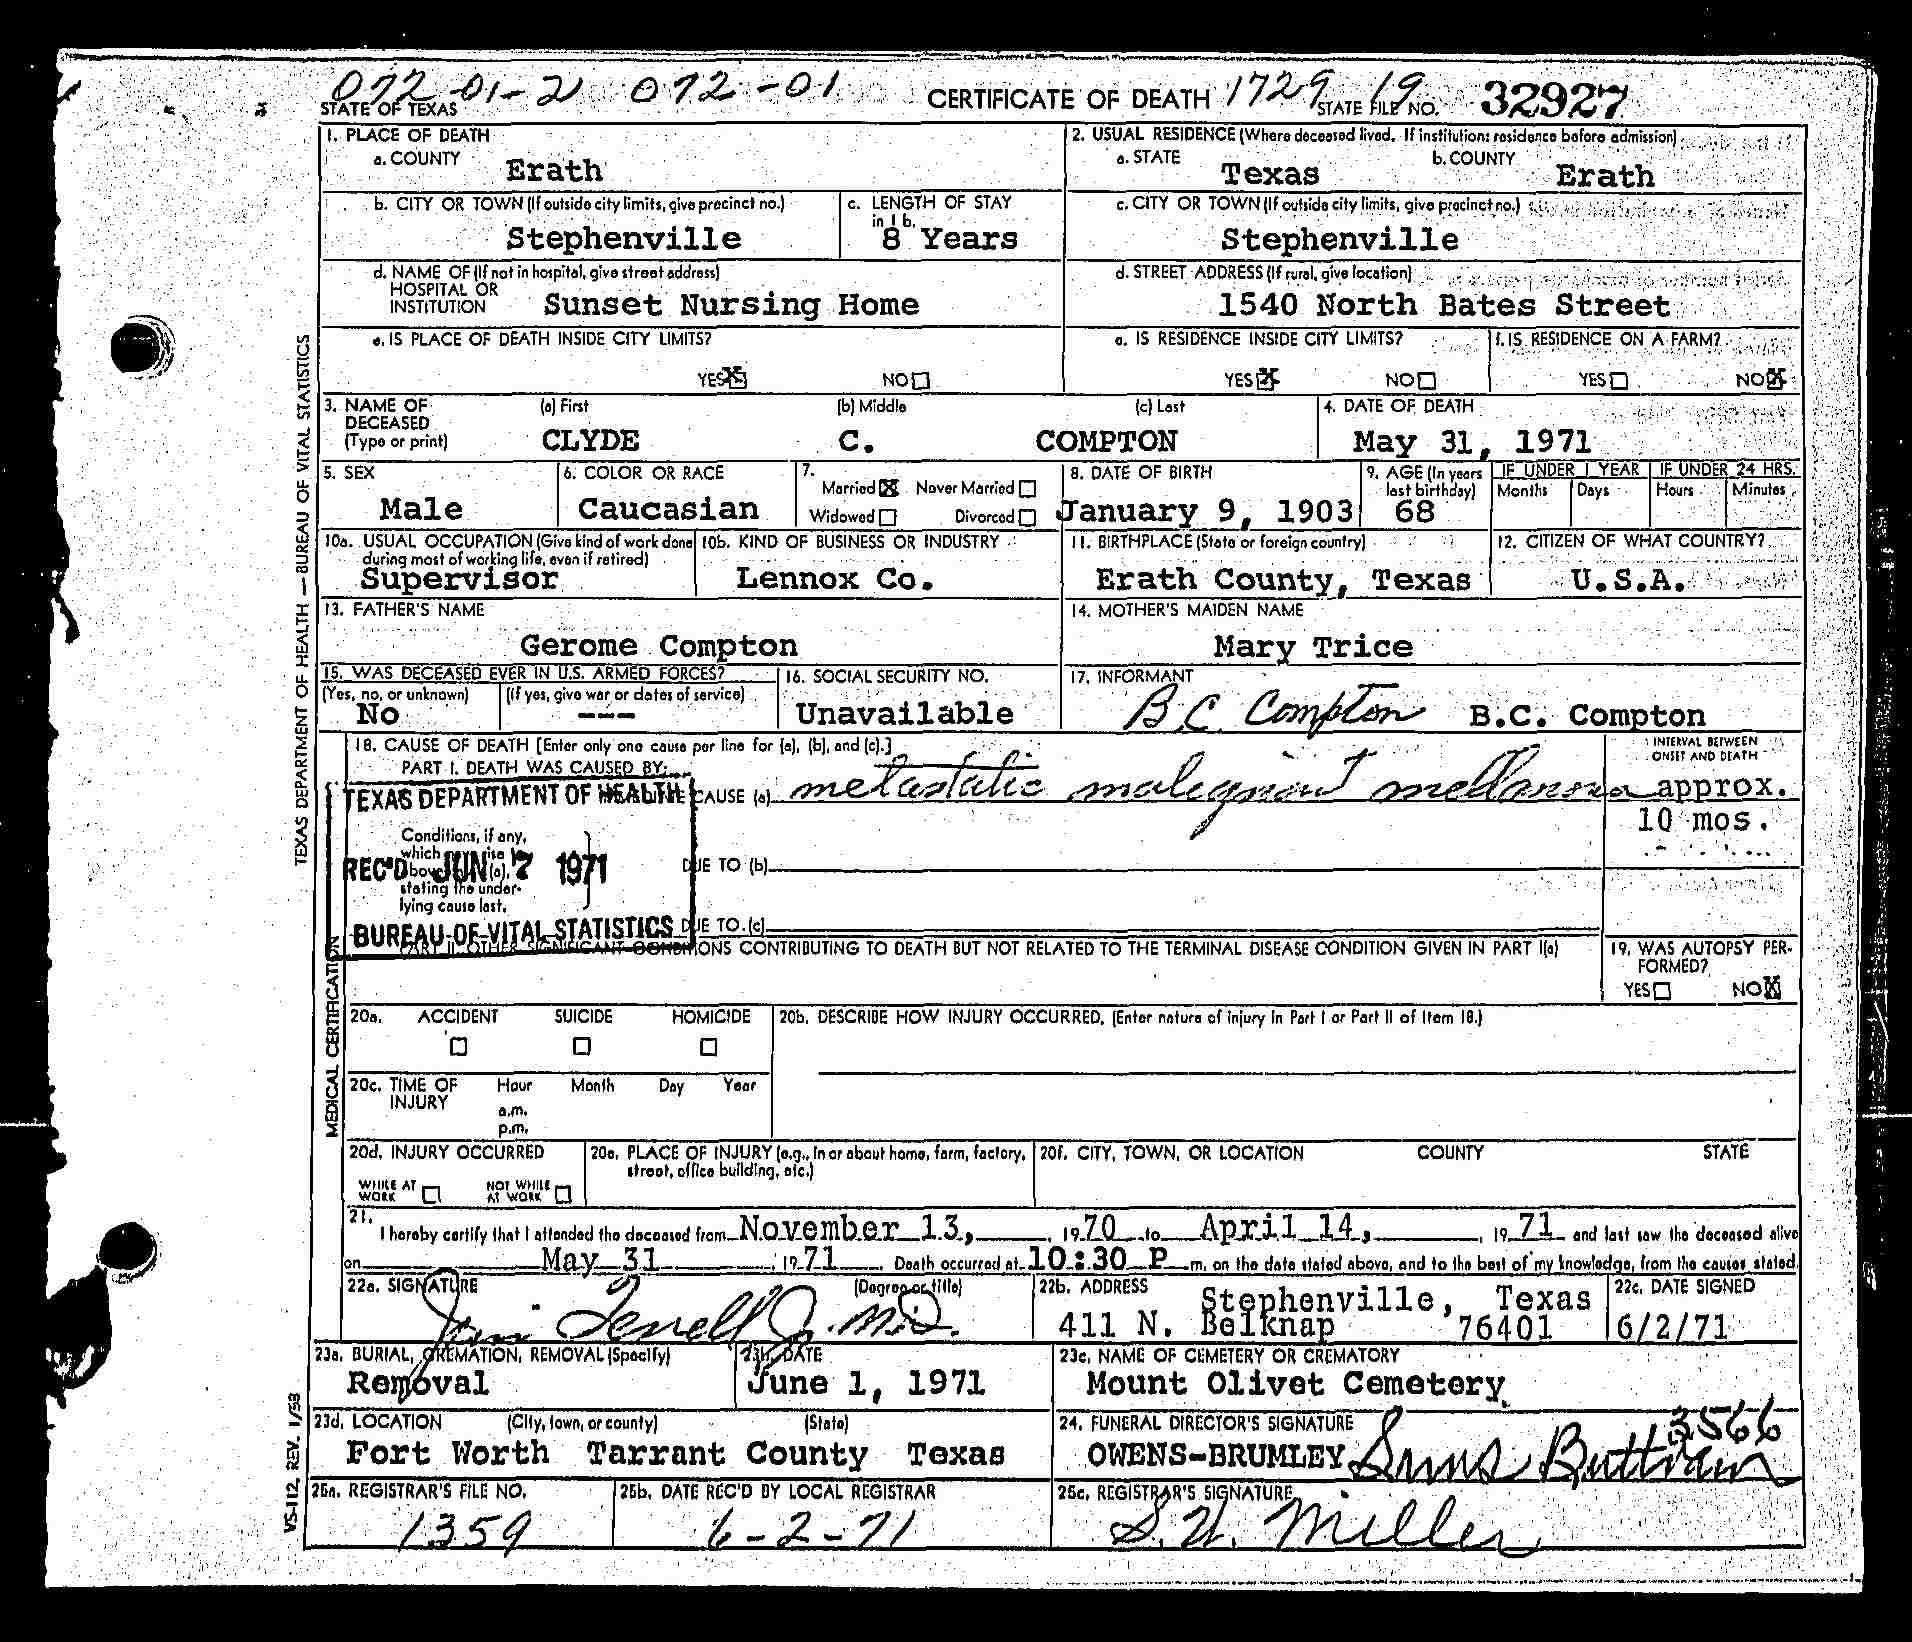 072-01-2 072-01 1729 19
STATE OF TEXAS CERTIFICATE OF DEATH STATE FILE NO. 32927
TEXAS DEPARTMENT OF HEALTH — BUREAU OF VITAL STATISTICS
1. PLACE OF DEATH
a. COUNTY Erath
2. USUAL RESIDENCE (Where deceased lived. If institution: residence before admission)
a. STATE Texas b. COUNTY Erath
b. CITY OR TOWN (If outside city limits, give precinct no.) Stephenville
c. LENGTH OF STAY in 1b. 8 Years
c. CITY OR TOWN (If outside city limits, give precinct no.) Stephenville
d. NAME OF (If not in hospital, give street address) HOSPITAL OR INSTITUTION Sunset Nursing Home
d. STREET ADDRESS (If rural, give location) 1540 North Bates Street
e. IS PLACE OF DEATH INSIDE CITY LIMITS? YES NO
e. IS RESIDENCE INSIDE CITY LIMITS? YES NO
f. IS RESIDENCE ON A FARM? YES NO
3. NAME OF DECEASED (Type or print) (a) First CLYDE (b) Middle C. (c) Last COMPTON
4. DATE OF DEATH May 31, 1971
5. SEX Male
6. COLOR OR RACE Caucasian
7. Married Never Married Widowed Divorced
8. DATE OF BIRTH January 9, 1903
9. AGE (In years last birthday) 68
IF UNDER 1 YEAR Months Days
IF UNDER 24 HRS. Hours Minutes
10a. USUAL OCCUPATION (Give kind of work done during most of working life, even if retired) Supervisor
10b. KIND OF BUSINESS OR INDUSTRY Lennox Co.
11. BIRTHPLACE (State or foreign country) Erath County, Texas
12. CITIZEN OF WHAT COUNTRY? U.S.A.
13. FATHER'S NAME Gerome Compton
14. MOTHER'S MAIDEN NAME Mary Trice
15. WAS DECEASED EVER IN U.S. ARMED FORCES? (Yes, no, or unknown) No (If yes, give war or dates of service) ---
16. SOCIAL SECURITY NO. Unavailable
17. INFORMANT B.C. Compton B.C. Compton
MEDICAL CERTIFICATION
18. CAUSE OF DEATH [Enter only one cause per line for (a), (b), and (c).]
PART I. DEATH WAS CAUSED BY:
CAUSE (a) metastatic malignant mellanoma
INTERVAL BETWEEN ONSET AND DEATH approx. 10 mos.
TEXAS DEPARTMENT OF HEALTH
REC'D JUN 7 1971
BUREAU OF VITAL STATISTICS
Conditions, if any,
which
stating the under-
lying cause last.
DUE TO (b)
DUE TO (c)
PART II. OTHER SIGNIFICANT CONDITIONS CONTRIBUTING TO DEATH BUT NOT RELATED TO THE TERMINAL DISEASE CONDITION GIVEN IN PART I(a)
19. WAS AUTOPSY PERFORMED? YES NO
20a. ACCIDENT SUICIDE HOMICIDE
20b. DESCRIBE HOW INJURY OCCURRED. (Enter nature of injury in Part I or Part II of Item 18.)
20c. TIME OF INJURY Hour Month Day Year
a.m.
p.m.
20d. INJURY OCCURRED WHILE AT WORK NOT WHILE AT WORK
20e. PLACE OF INJURY (e.g., in or about home, farm, factory, street, office building, etc.)
20f. CITY, TOWN, OR LOCATION COUNTY STATE
21. I hereby certify that I attended the deceased from November 13, 1970 to April 14, 1971 and last saw the deceased alive
on May 31 1971. Death occurred at 10:30 P m. on the date stated above, and to the best of my knowledge, from the causes stated.
22a. SIGNATURE (Degree or title) Jim Terrell Jr. M.D.
22b. ADDRESS 411 N. Belknap Stephenville, Texas 76401
22c. DATE SIGNED 6/2/71
23a. BURIAL, CREMATION, REMOVAL (Specify) Removal
23b. DATE June 1, 1971
23c. NAME OF CEMETERY OR CREMATORY Mount Olivet Cemetery
23d. LOCATION (City, town, or county) (State) Fort Worth Tarrant County Texas
24. FUNERAL DIRECTOR'S SIGNATURE 3566
OWENS-BRUMLEY
25a. REGISTRAR'S FILE NO. 1359
25b. DATE REC'D BY LOCAL REGISTRAR 6-2-71
25c. REGISTRAR'S SIGNATURE S.H. Miller
VS-112 REV. 1/58